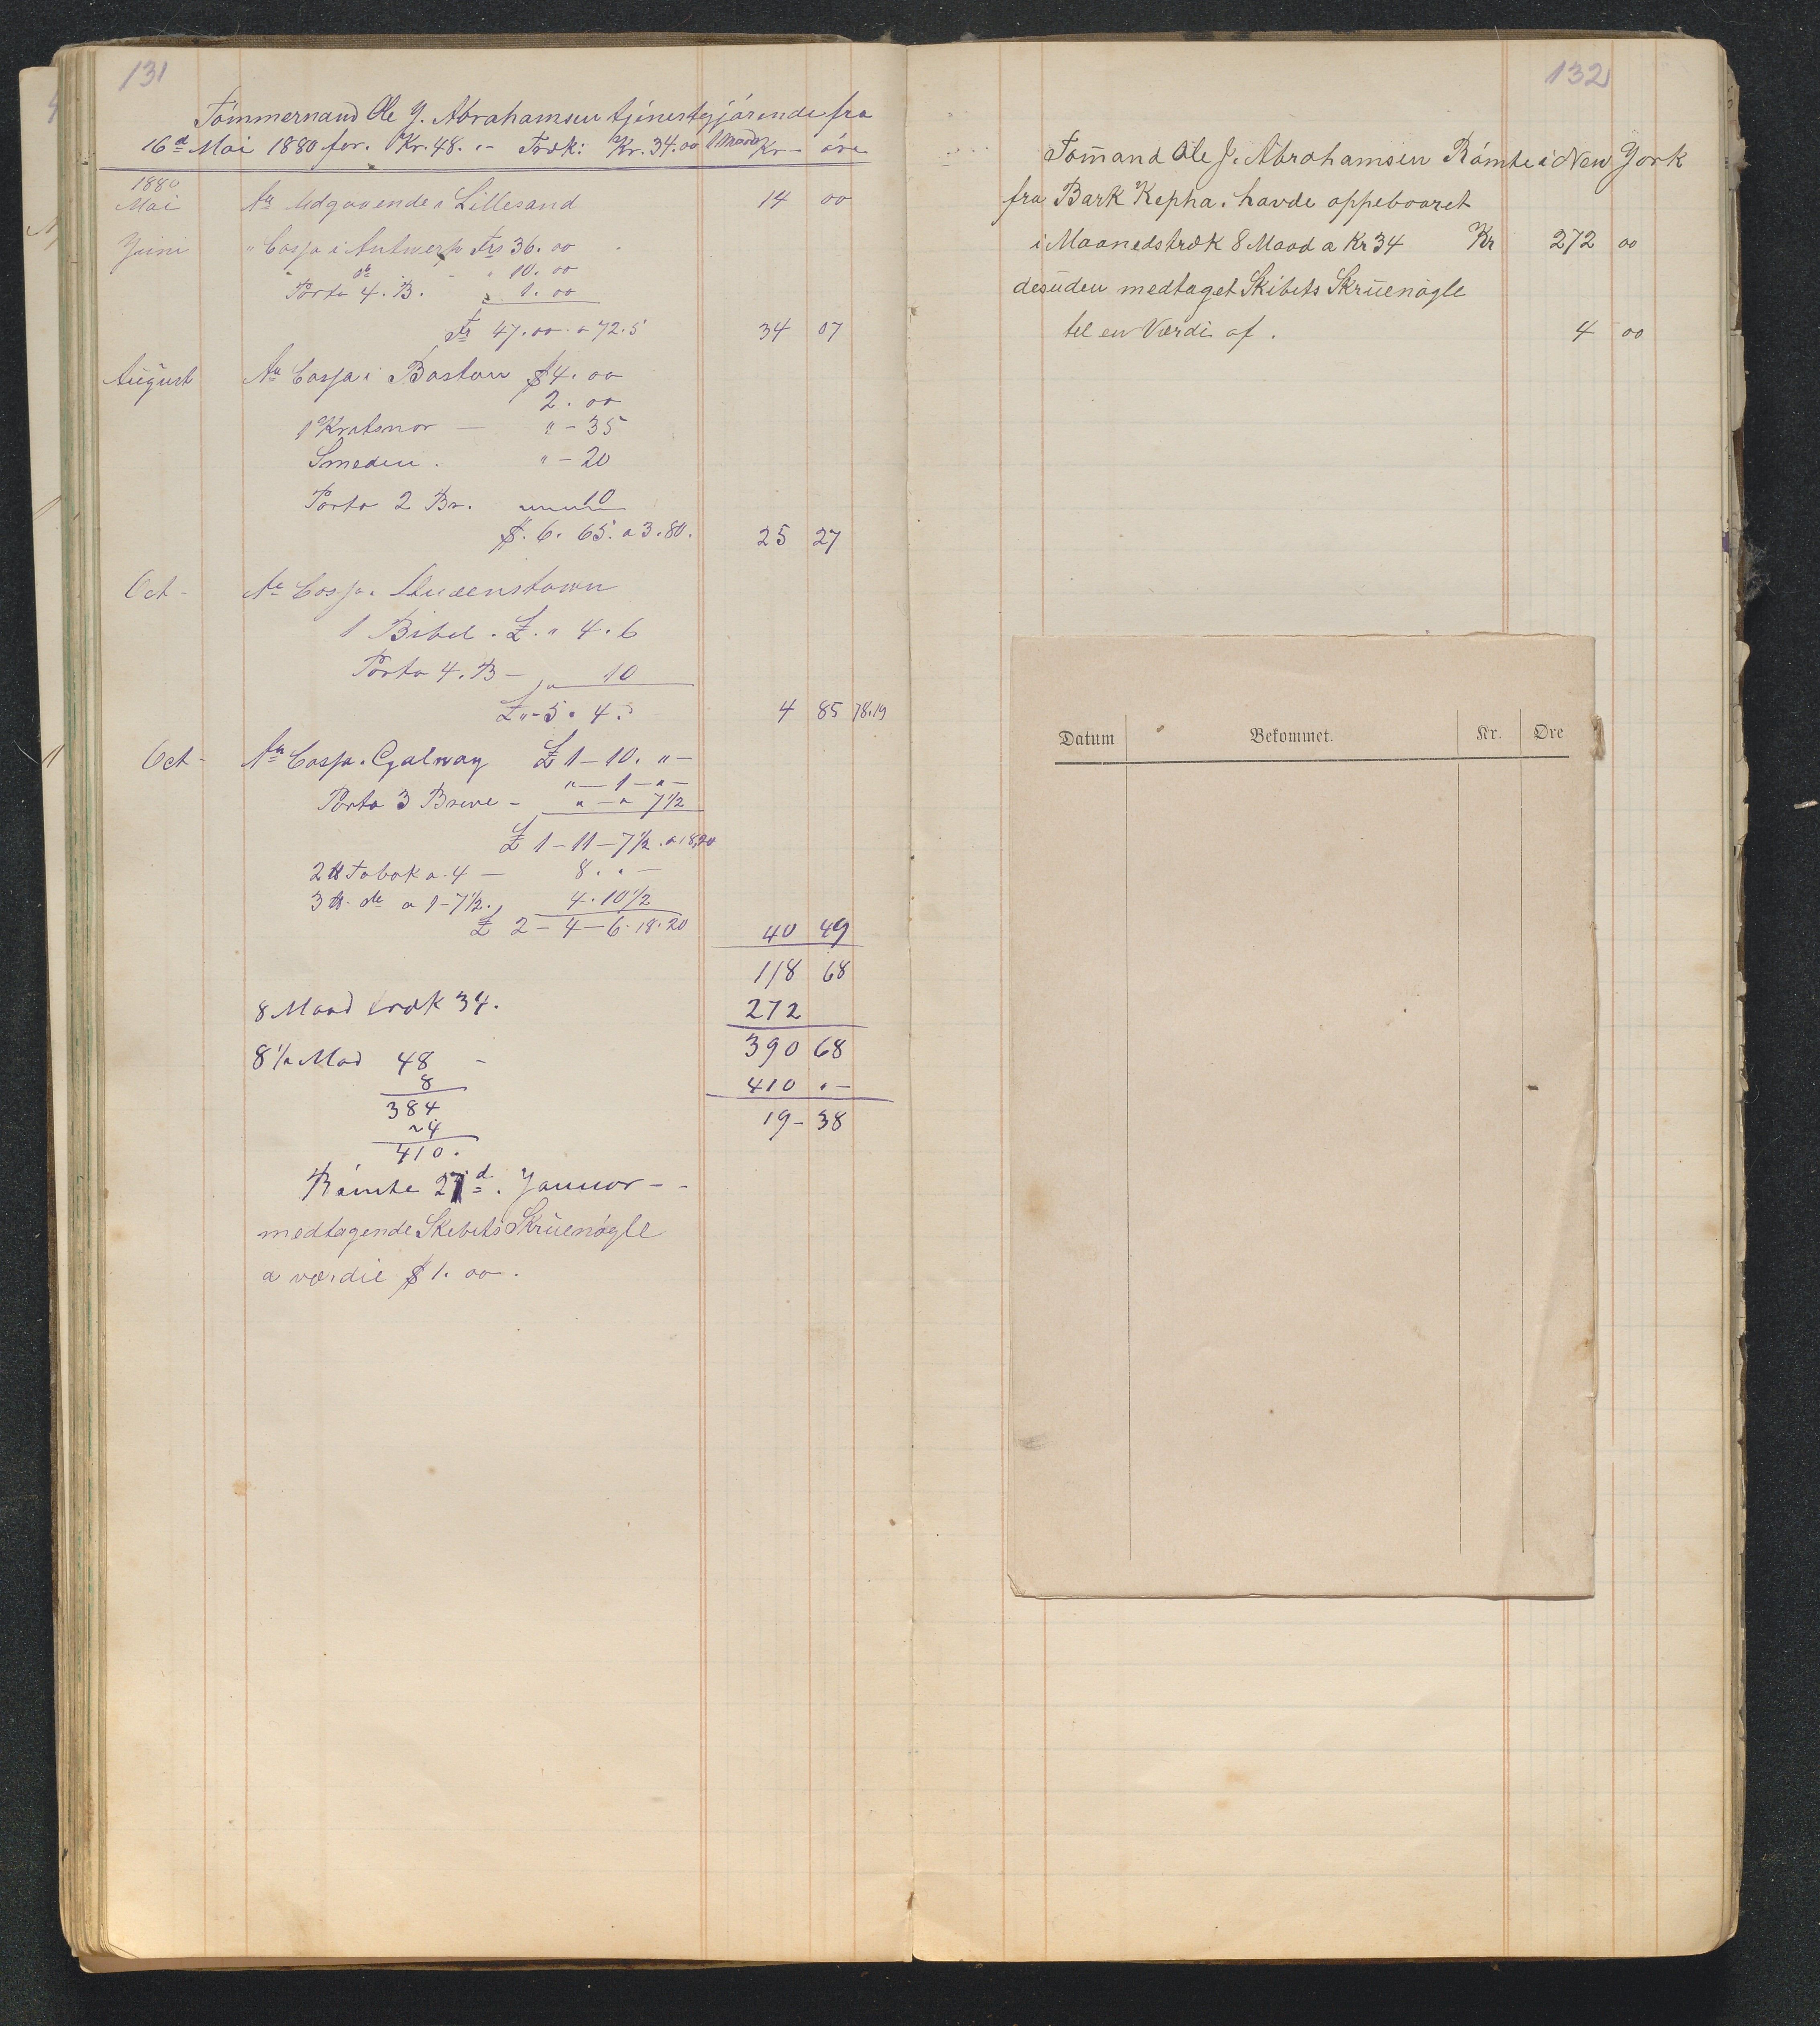 131
Tömmermand Ole J. Abrahamsen tjenestgjörende fra
16d Mai 1880 for. Kr. 48. "- Træk: Kr. 34.00 1 Maaned Kr - öre
1880
Mai An Udgaaende i Lillesand 14 00
Juni " Cassa i Antwerp Frs 36.00
" do - " 10.00
Porto 4. B. " 1.00
Fr 47.00 a 72.5 34 07
August An Cassa i Boston $ 4.00
2.00
1 — " - 35
Smeden. " - 20
Porto 2 Br. 10
$. 6. 65. a 3.80. 25 27
Oct - An Cassa. Queenstown
1 Bibel. £. " 4.6
Porto 4. B - " 10
£ " - 5. 4. 4 85 78.19
Oct - An Cassa. Galway £ 1 - 10. " -
" - 1 - " -
Porto 3 Breve - " - " 7 1/2
£ 1 - 11 - 7 1/2. a 18,20
2 ℔ Tobak a. 4 — 8. " -
3 ℔. do a 1 - 7 1/2. 4. 10 1/2
£ 2 - 4 - 6. 18.20 40 49
118 68
8 Maad træk 34. 272
8 1/2 Mad 48 - 390 68
8 410 " -
384 19 - 38
24
410.
Römte 27d. Januar - -
medtagende Skibets Skruenögle
a værdie $ 1.00.
132
Tömand Ole J. Abrahamsen Römte i New York
fra Bark Kepha. havde oppebaaret
i Maanedstræk 8 Maad a Kr 34 Kr 272 00
desuden medtaget Skibets Skruenögle
til en Værdi af. 4 00
Datum Bekommet. Kr. Øre